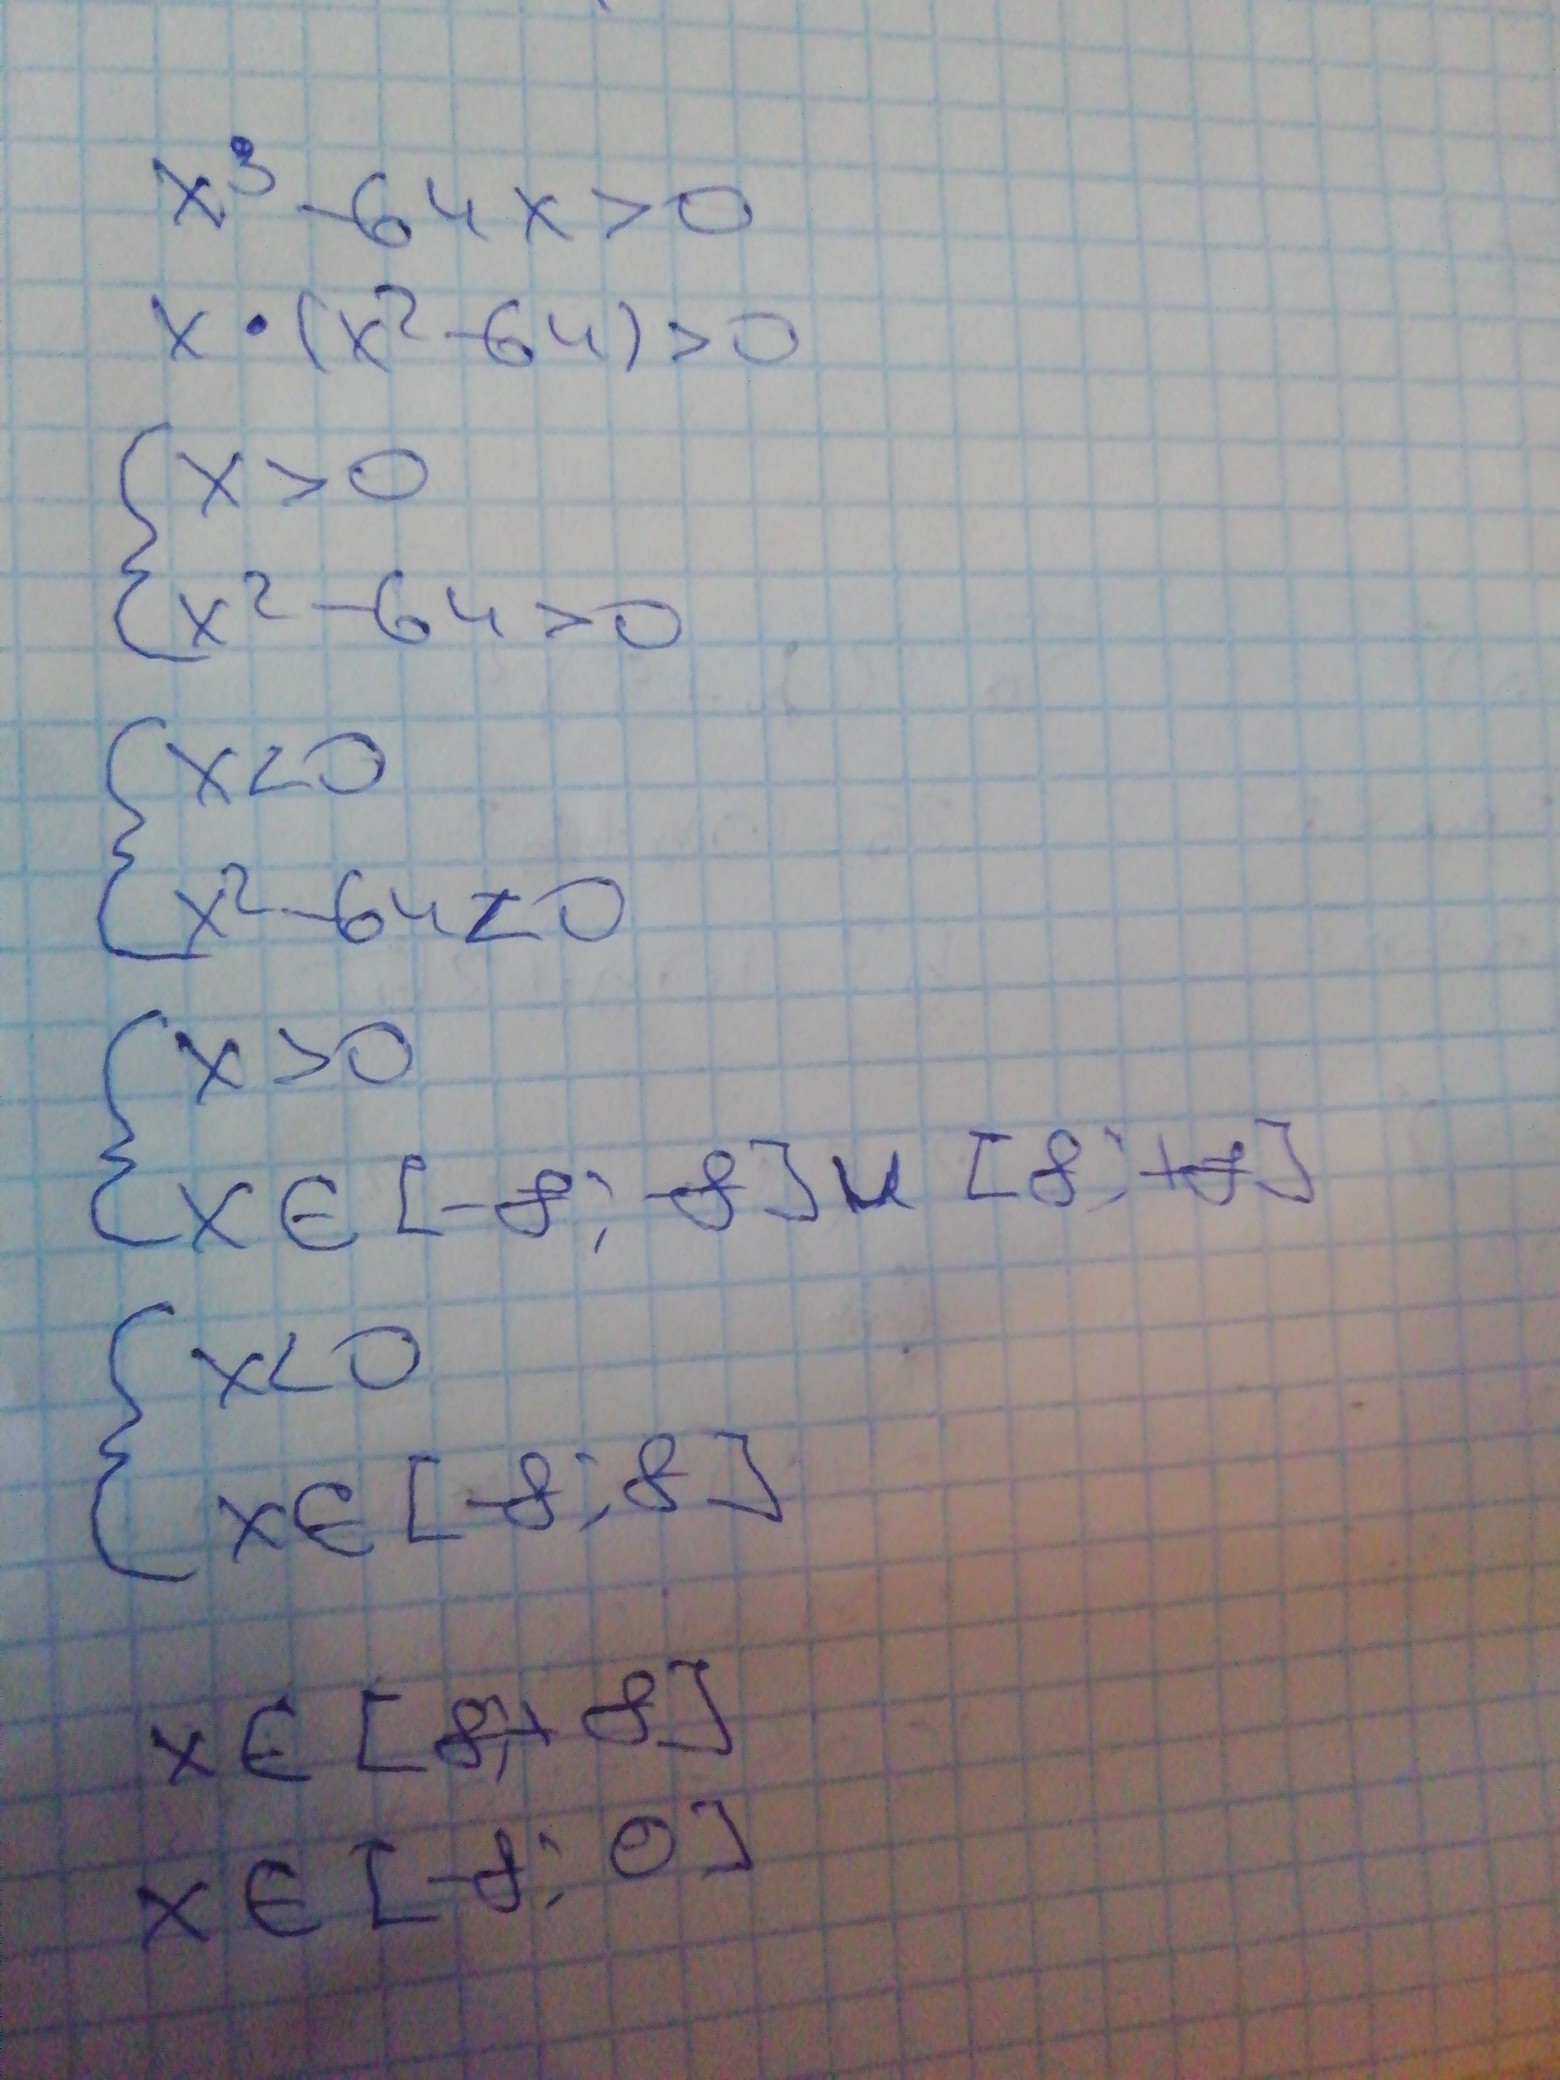 x³-64x>0
x·(x²-64)>0
{x>0
x²-64>0
{x<0
x²-64<0
{x>0
x∈[-8;-8]u[8;+8]
{x<0
x∈[-8;8]
x∈[8;+8]
x∈[-8;0]